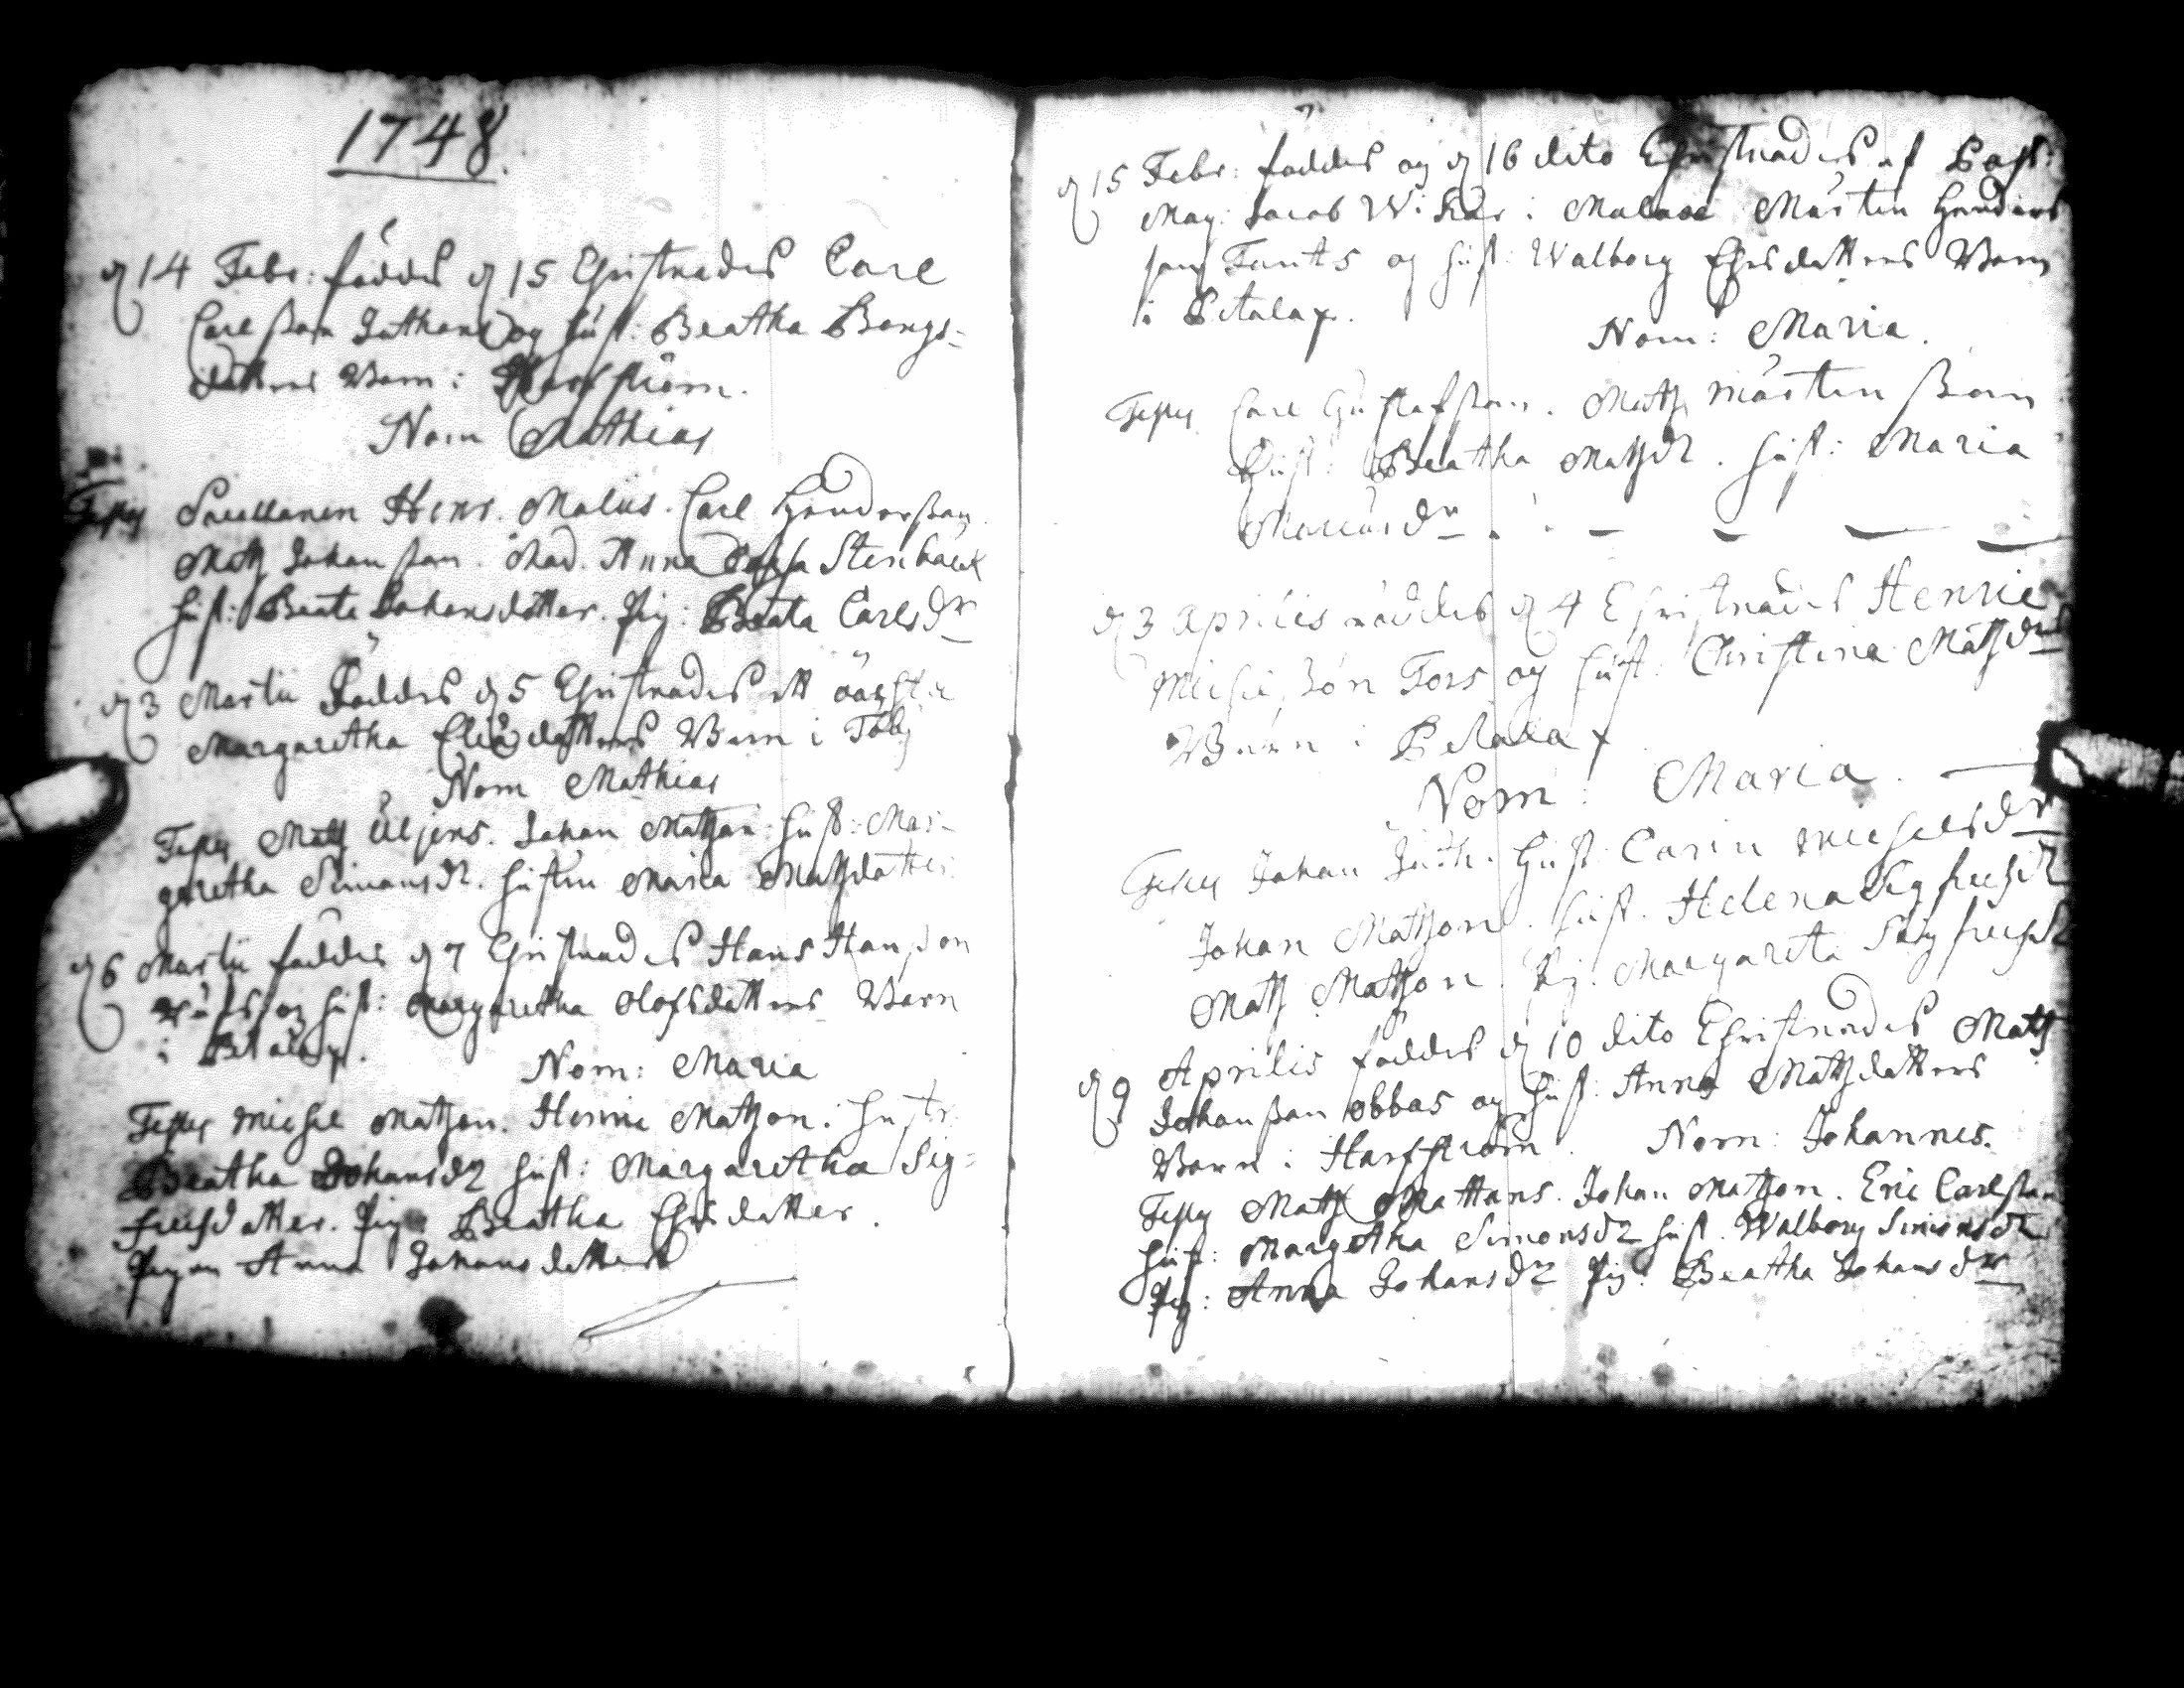 1748.
d 14 Febr: föddes d 15 Christnades Carl
Carlsson Juthans og hust: Beatha Bengs-
dotters Barn i Harfström.
Nom Mathias
Testes Henr. Malius. Carl Hendersson
Matz Johansson. Mad. Anna Stenbäck
hust: Beata Johansdotter. Pig: Beata Carlsdr
d 3 Martii föddes d 5 Christnades ett
Margaretha dotters Barn i Töby
Nom Mathias
Testes Matz Johan Matzson: hust: Mar-
garetha Simonsdr. hustru Maria Matzdotter
d 6 Martii föddes d 7 Christnades Hans Hansson
og hust: Margaretha Olofsdotters Barn
i Petalax.
Nom: Maria
Testes Michel Matzson. Henric Matzson: hustr
Beatha Johansdr hust: Margaretha Sig-
fredsdotter. Pig: Beatha Ersdotter.
Pigan Anna Johansdotter
d 15 Febr: föddes og d 16 dito Christnades af Past:
Mag: Jacob i Malax Mårten Henders
son Fants og hust: Walborg Ersdotters Barn
i Petalax.
Nom: Maria.
Testes Carl Gustafsson. Matz Mårtensson
hust: Beatha Matzdr. hust: Maria
Mariæ dr
d 3 Aprilis föddes d 4 Christnades Henric
Michelsson Fors og hust: Christina Matzdr
Barn i Petalax
Nom: Maria.
Testes Johan Juth. hust: Carin Michelsdr
Johan Matzson. hust. Helena Sigfredsdr
Matz Matzson. Pig: Margareta Sigfredsdr
d 9 Aprilis föddes d 10 dito Christnades Matz
Johansson Obbas og hust: Anna Matzdotters
Barn i Harfström. Nom: Johannes.
Testes Matz Mattans. Johan Matzson. Eric Carlsson
hust: Margetha Simonsdr hust. Walborg Simonsdr
Pig: Anna Johansdr Pig: Beatha Johansdr